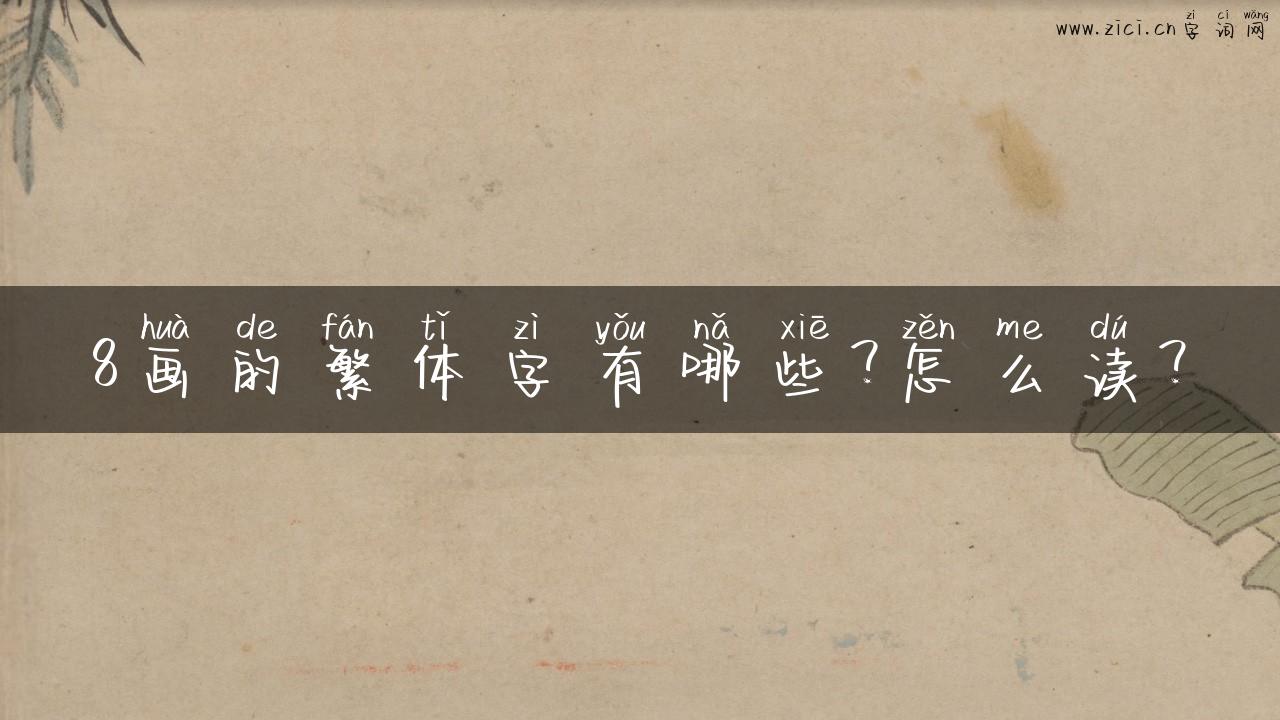 zì cí wǎng
www.zici.cn字词网
huà de fán tǐ zì yǒu nǎ xiē zěn me dú
8画的繁体字有哪些？怎么读？